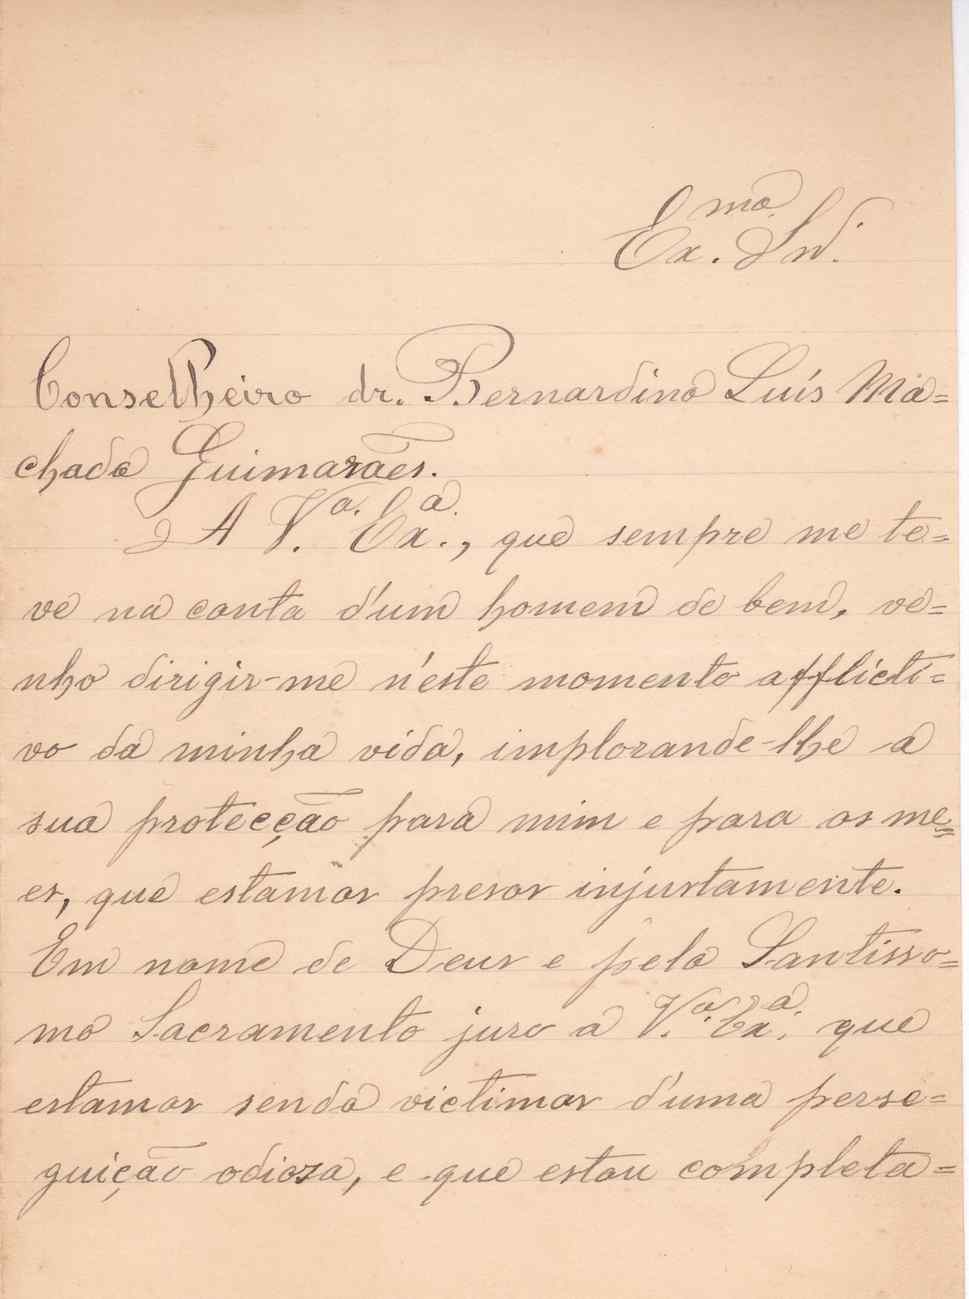 Ex.mo Snr.
Conselheiro dr. Bernardino Luís Ma=
chado Guimarães.
A V.a Ex.a, que sempre me te=
ve na conta d'um homem de bem, ve=
nho dirigir-me n'este momento afflicti=
vo da minha vida, implorando-lhe a
sua protecção para mim e para os me=
us, que estamos presos injustamente.
Em nome de Deus e pelo Santisso=
mo Sacramento juro a V.a Ex.a que
estamos sendo victimas d'uma perse=
guição odiosa, e que estou completa=